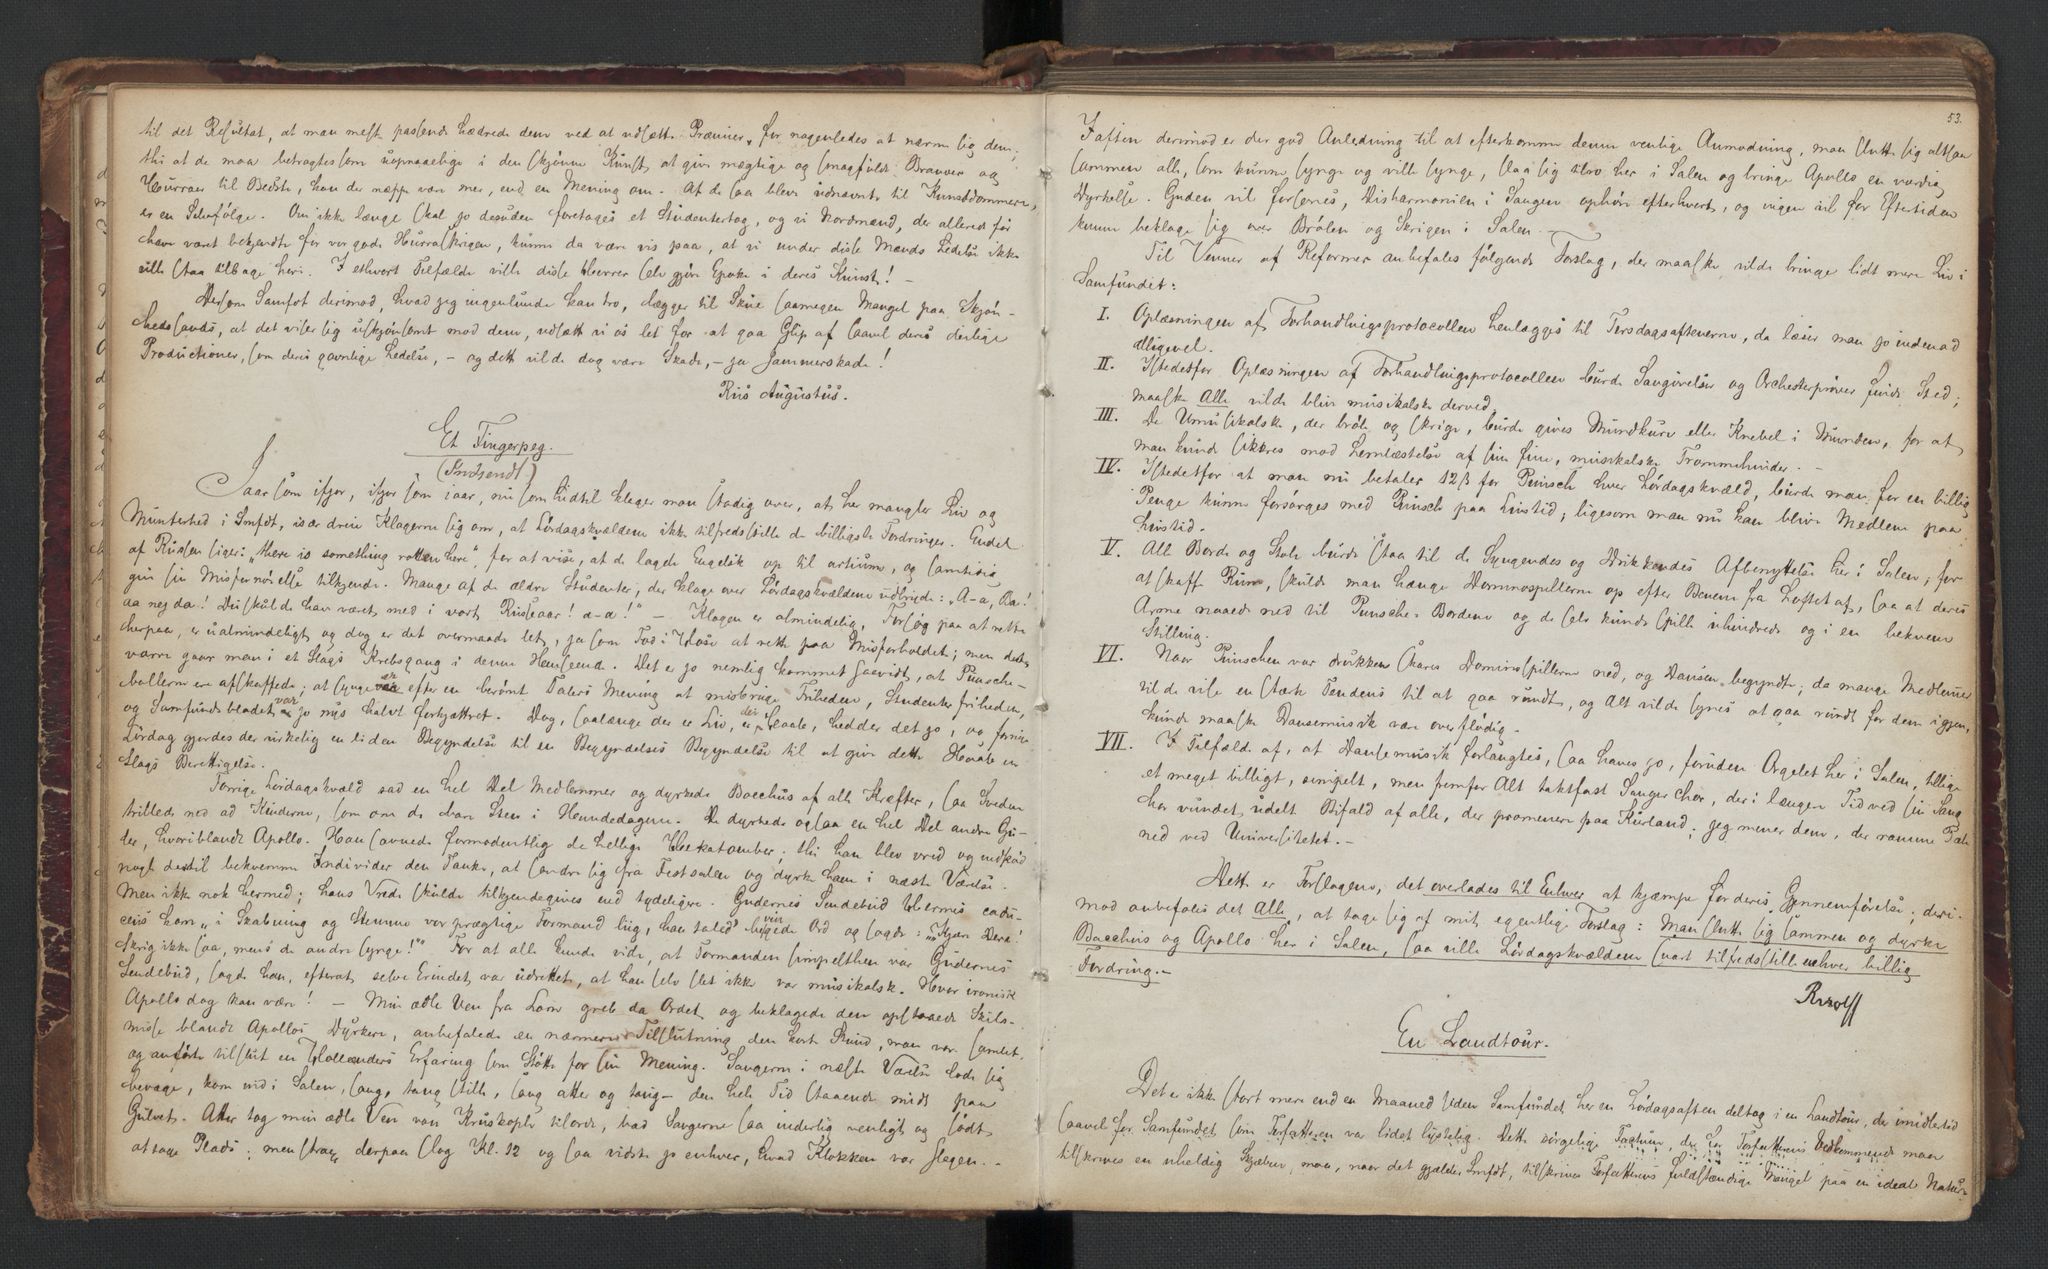 til det Resultat, at man mest passende hædrede dem ved at udsætte Præmier, for nogenledes at nærme sig dem;
thi at de maa betragtes som uopnaaelige i den skjønne Kunst at give mægtige og smagfulde Bravoer og
Hurraer til Bedste, kan der næppe være mer, end en Mening om. At de saa bleve udnævnte til Kunstdommere,
er en Selvfølge. Om ikke længe skal jo desuden foretages et Studentertog, og vi Nordmænd, der allerede før
have været bekjendte for vor gode Hurraskrigen, kunne da være vis paa, at vi under disse Mænds Ledelse ikke
ville staa tilbage heri. I ethvert Tilfælde ville disse Herrer selv gjøre Epoke i deres Kunst! –
Dersom Samfdt derimod, hvad jeg ingenlunde kan tro, lægger til Skue saamegen Mangel paa Skjøn-
hedssands, at det viser sig uskjønsomt mod dem, udsætte vi os let for at gaa Glip af saavel deres deilige
Productioner, som deres gavnlige Ledelse, – og dette vilde dog være Skade, – ja Jammerskade!
Riis Augustus.
Et Fingerpeg.
(Indsendt)
Iaar som ifjor, ifjor som iaar, nu som hidtil klager man stadig over, at her mangler Liv og
Munterhed i Smfdt, især dreie Klagerne sig om, at Lørdagskvældene ikke tilfredsstille de billigste Fordringer. Endel
af Russen siger: "there is something rotten here", for at vise, at de lagde Engelsk op til artium, og samtidig
give sin Misfornøielse tilkjende. Mange af de ældre Studenter, der klage over Lørdagskvældene udbryde: "A-a, Ba!
aa nei da! Du skulde have været med i vort Russeaar! a-a!" – Klagen er almindelig, Forsøg paa at rette
herpaa, er ualmindeligt og dog er det overmaade let, ja som Fod i Hose at rette paa Misforholdet; men desto
værre gaar man i et Slags Krebsgang i denne Henseende. Det er jo nemlig kommet saavidt, at Punsche-
bollerne ere afskaffede; at synge er efter en berømt Talers Mening at misbruge Friheden, Studenterfriheden,
og Samfundsbladet var jo nys halvt forkjættret. Dog, saalænge der er Liv, er der Haab, hedder det jo, og forrige
Lørdag gjordes der virkelig en liden Begyndelse til en Begyndelses Begyndelse til at give dette Haab en
Slags Berettigelse.
Forrige Lørdagskvæld sad en hel Del Medlemmer og dyrkede Bacchus af alle Kræfter, saa Sveden
trillede ned ad Kinderne, som om de bar Sten i Hundedagene. De dyrkede ogsaa en hel Del andre Gu-
der, hvoriblandt Apollo. Han savnede formodentlig de hellige Hekatomber; thi han blev vred og indskød
nogle dertil bekvemme Individer den Tanke, at samle sig fra Festsalen og dyrke ham i næste Værelse.
Men ikke nok hermed; hans Vrede skulde tilkjendegives end tydeligere. Gudernes Sendebud Hermes cadu-
ceus kom, i Skabning og Stemme vor prægtige Formand liig, han taled' vingede Ord og sagde: "Kjære Dere!
Skrig ikke saa, mens de andre synge!" For at alle kunde vide, at Formanden simpelthen var Gudernes
Sendebud, sagde han, efterat selve Erindet var udrettet, at han selv slet ikke var musikalsk. Hvor ironisk
Apollo dog kan være! – Min ædle Ven fra Lom greb da Ordet og beklagede den opstaaede Skils-
misse blandt Apollos Dyrkere, anbefalede en nærmere Tilslutning den korte Stund, man var samlet,
og anførte tilslut en Hollænders Erfaring som Støtte for sin Mening. Sangerne i næste Værelse lode sig
bevæge, kom ind i Salen, sang, taug stille, sang atter og taug – den hele Tid staaende midt paa
Gulvet. Atter tog min ædle Ven van Kruskopla tilorde, bad Sangerne saa inderlig venligt og sødt
at tage Plads; men strax derpaa slog Kl. 12 og saa vidste jo enhver, hvad Klokken var slagen. –
53.
I aften derimod er der god Anledning til at efterkomme denne venlige Anmodning, man slutte sig altsaa
sammen alle, som kunne synge og ville synge, slaa sig ned her i Salen og bringe Apollo en værdig
Dyrkelse. Guden vil forsones, Disharmonien i Sangen ophøre efterhvert, og ingen vil for Eftertiden
kunne beklage sig over Brølen og Skrigen i Salen. –
Til Venner af Reformer anbefales følgende Forslag, der maaske vilde bringe lidt mere Liv i
Samfundet:
I. Oplæsningen af Forhandlingsprotocollen henlægges til Torsdagsaftenerne, da læser man jo indenad
alligevel.
II. Istedetfor Oplæsningen af Forhandlingsprotocollen burde Sangøvelser og Orchesterprøver finde Sted;
maaske Alle vilde blive musikalske derved.
III. De Umusikalske, der brøle og skrige, burde gives Mundkurv eller Knebel i Munden, for at
man kunde sikkres mod Lemlæstelse af sine fine, musikalske Trommehinder. –
IV. Istedetfor at man nu betaler 12 ß for Punsch hver Lørdagskvæld, burde man for en billig
Penge kunne forsørges med Punsch paa Livstid; ligesom man nu kan blive Medlem paa
Livstid.
V. All Borde og Stole burde staa til de Syngendes og Drikkendes Afbenyttelse her i Salen; for
at skaffe Rum, skulde man hænge Dominospillerne op efter Benene fra Loftet af, saa at deres
Arme naaede ned til Punsche-Bordene og de selv kunde spille uhindrede og i en bekvem
Stilling.
VI. Naar Punschen var drukken skares Dominospillerne ned, og Dansen begyndte; da mange Medlemmer
vilde vise en stærk Tendens til at gaa rundt, og Alt vilde synes at gaa rundt for dem igjen,
kunde maaske Dansemusik være overflødig. –
VII. I Tilfælde af, at Dansemusik forlangtes, saa haves jo, foruden Orgelet her i Salen, tillige
et meget billigt, simpelt, men fremfor Alt taktfast Sangerchor, der i længere Tid ved sin Sang
har vundet udelt Bifald af alle, der promenere paa Kurland; jeg mener dem, der ramme Pæle
ned ved Universitetet. –
Dette er Forslagene, det overlades til Enhver at kjæmpe for deres Gjennemførelse; deri-
mod anbefales det Alle, at tage sig af mit egentlige Forslag: Man slutte sig sammen og dyrke
Bacchus og Apollo her i Salen, saa ville Lørdagskvældene snart tilfredsstille enhver billig
Fordring. –
En Landtour.
Det er ikke stort mere end en Maaned siden Samfundet her en Lørdagsaften deltog i en Landtour, der imidlertid
saavel for Samfundet som Forfatteren var lidet lystelig. Dette sørgelige Factum, der for Forfatterens Vedkommende maa
tilskrives en uheldig Skjæbne, maa, naar det gjælder Smfdt, tilskrives Forfatterens fuldstændige Mangel paa en ideal Natur-